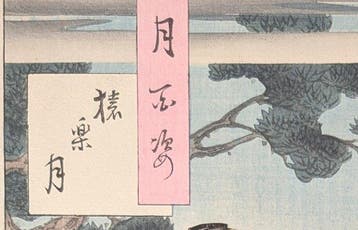 月百姿
猿楽月